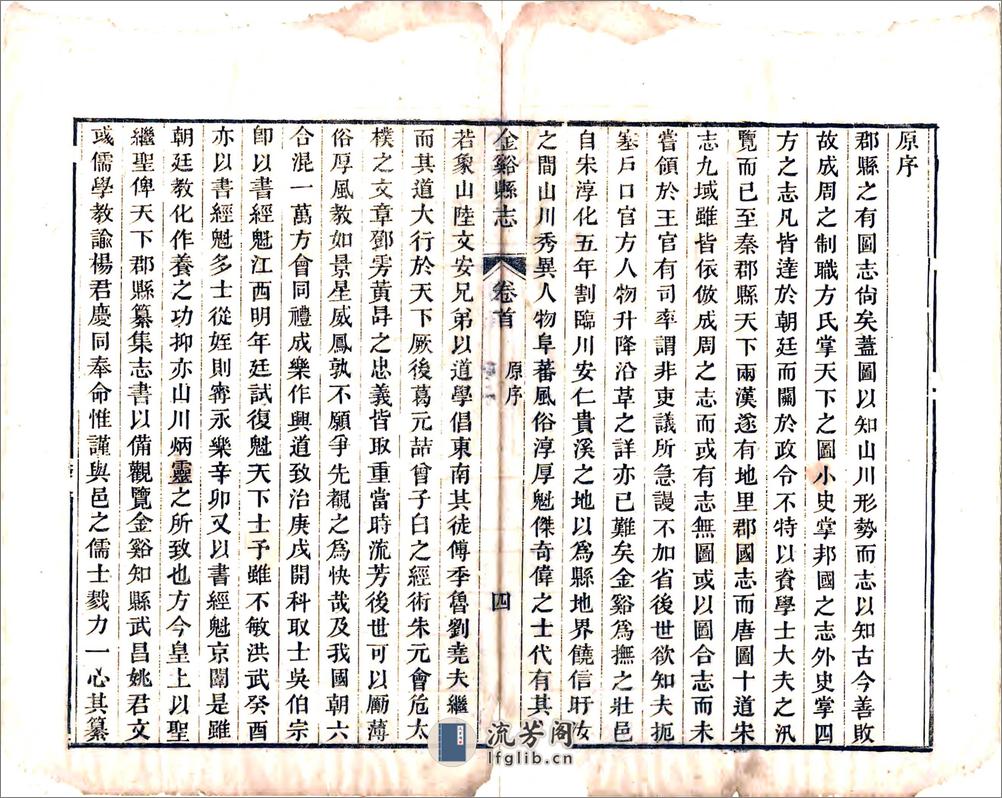 原序
郡縣之有圖志尙矣蓋圖以知山川形勢而志以知古今善敗
故成周之制職方氏掌天下之圖小史掌邦國之志外史掌四
方之志凡皆達於朝廷而關於政令不特以資學士大夫之汎
覽而已至秦郡縣天下兩漢遂有地里郡國志而唐圖十道宋
志九域雖皆依倣成周之志而或有志無圖或以圖合志而未
嘗領於王官有司率謂非吏議所急謾不加省後世欲知夫扼
塞戶口官方人物升降沿革之詳亦已難矣金谿爲撫之壯邑
自宋淳化五年割臨川安仁貴溪之地以爲縣地界饒信盱汝
之間山川秀異人物阜蕃風俗淳厚魁傑奇偉之士代有其
金谿縣志 卷首 原序 四
若象山陸文安兄弟以道學倡東南其徒傅季魯劉堯夫繼
而其道大行於天下厥後葛元喆曾子白之經術朱元會危太
樸之文章鄧雱黃昇之忠義皆取重當時流芳後世可以勵薄
俗厚風教如景星威鳳孰不願爭先覩之爲快哉及我國朝六
合混一萬方會同禮成樂作興道致治庚戌開科取士吳伯宗
卽以書經魁江西明年廷試復魁天下士予雖不敏洪武癸酉
亦以書經魁多士從姪則甯永樂辛卯又以書經魁京闈是雖
朝廷教化作養之功抑亦山川炳靈之所致也方今皇上以聖
繼聖俾天下郡縣纂集志書以備觀覽金谿知縣武昌姚君文
彧儒學教諭楊君慶同奉命惟謹與邑之儒士戮力一心其纂
流芳阁
lfglib.cn